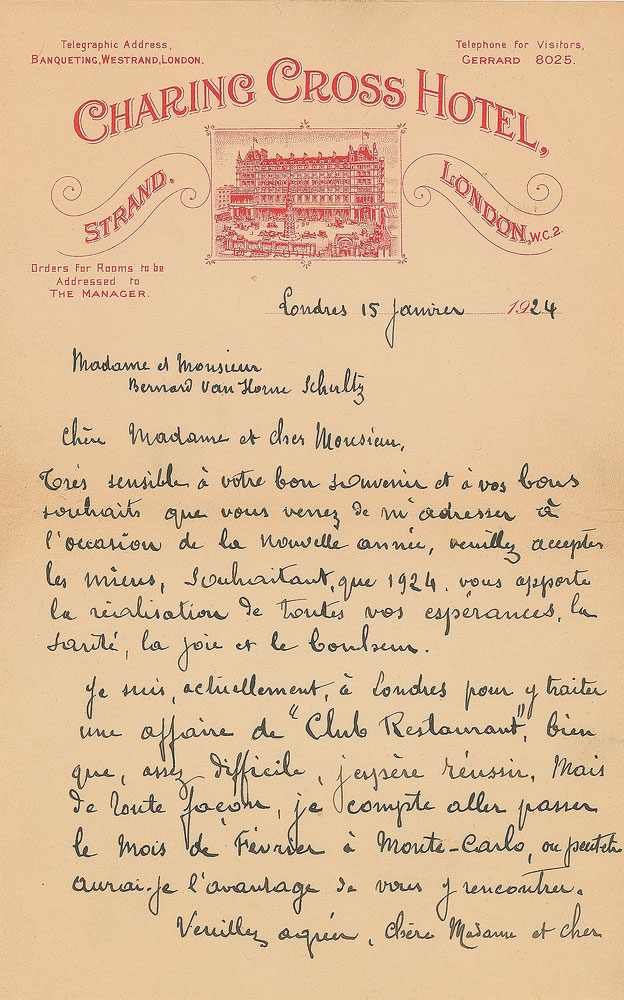 Telegraphic Address,
BANQUETING, WESTRAND, LONDON.
Telephone for Visitors,
GERRARD 8025.
CHARING CROSS HOTEL,
STRAND.
LONDON, W.C.2.
Orders for Rooms to be
Addressed to
THE MANAGER.
Londres 15 Janvier 1924
Madame et Monsieur
Bernard Van Horne Schultz
Chère Madame et cher Monsieur,
Très sensible à votre bon souvenir et à vos bons
souhaits que vous venez de m'adresser à
l'occasion de la nouvelle année, veuillez accepter
les miens, souhaitant, que 1924. vous apporte
la réalisation de toutes vos espérances, la
santé, la joie et le bonheur.
Je suis, actuellement, à Londres pour y traiter
une affaire de "Club Restaurant", bien
que, assez difficile, j'espère réussir. Mais
de toute façon, je compte aller passer
le Mois de Février à Monte-Carlo, ou peut-être
aurai-je l'avantage de vous y rencontrer.
Veuillez agréer, Chère Madame et cher